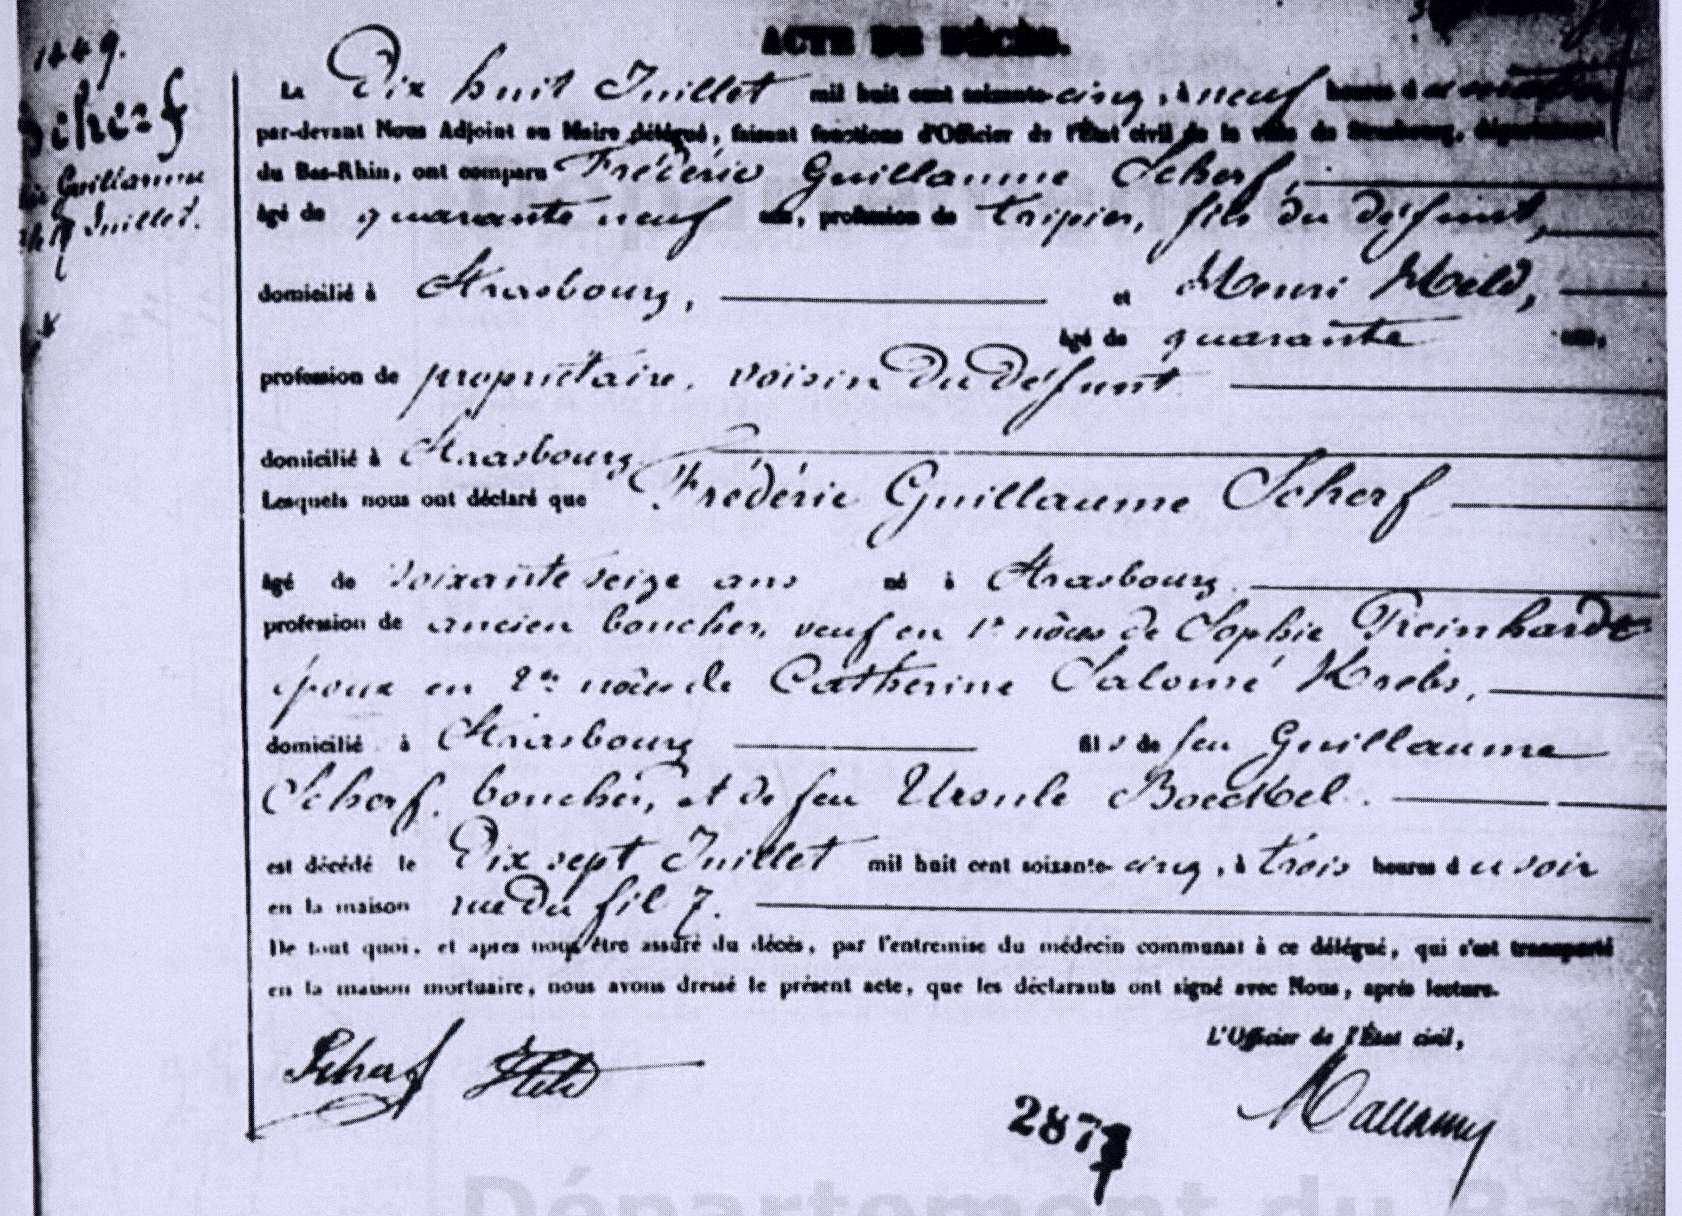 1449.
Scherf
Guillaume
Juillet.
ACTE DE DÉCÈS.
Le Dix huit Juillet mil huit cent soixante-cinq, à neuf heures du matin
par-devant Nous Adjoint au Maire délégué, faisant fonctions d'Officier de l'État civil de la ville de Strasbourg, département
du Bas-Rhin, ont comparu Frédéric Guillaume Scherf,
âgé de quarante neuf ans, profession de tripier, fils du défunt,
domicilié à Strasbourg, et Henri Held,
âgé de quarante ans,
profession de propriétaire, voisin du défunt
domicilié à Strasbourg
Lesquels nous ont déclaré que Frédéric Guillaume Scherf
âgé de soixante seize ans né à Strasbourg
profession de ancien boucher, veuf en 1es nôces de Sophie Reinhardt
époux en 2es nôces de Catherine Salomé Krebs,
domicilié à Strasbourg fils de feu Guillaume
Scherf, boucher, et de feu Ursule Boeckel.
est décédé le Dix sept Juillet mil huit cent soixante-cinq, à trois heures du soir
en la maison rue du fil 7.
De tout quoi, et après nous être assuré du décès, par l'entremise du médecin communal à ce délégué, qui s'est transporté
en la maison mortuaire, nous avons dressé le présent acte, que les déclarants ont signé avec Nous, après lecture.
L'Officier de l'État civil,
Scherf Held
287
Département du Ba